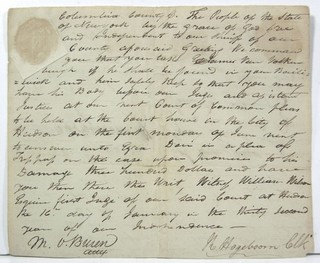 Columbia County ss. The People of the State
of New York by the grace of God Free
and Independent to our Sheriff of our
County aforesaid Greeting We command
you that you take James Van Valken
burgh if he shall be found in your Baili
wick and him safely keep so that you may
have his Body before our Judges and assistant
Justices at our next Court of Common pleas
to be held at the Court house in the City of
Hudson on the first monday of June next
to answer unto Ezra in a plea of
Trespass on the case upon promises to his
Damage three hundred Dollars and have
you then there this Writ, Witness William Wilson
Esquire first Judge of our said Court at Hudson
the 16th day of January in the thirty second
year of our Independence
M. V. Buren
atty
Hogeboom Clk